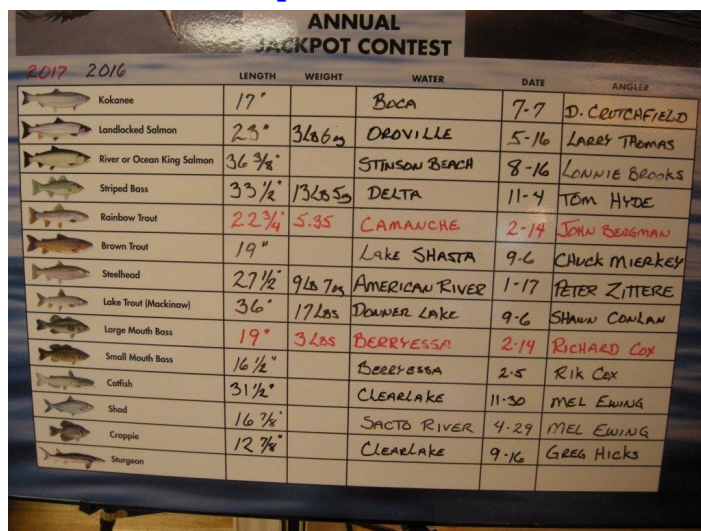 ANNUAL
JACKPOT CONTEST
2017 2016 LENGTH WEIGHT WATER DATE ANGLER
Kokanee 17" BOCA 7-7 D. CRUTCHFIELD
Landlocked Salmon 23" 3Lbs6oz OROVILLE 5-16 LARRY THOMAS
River or Ocean King Salmon 36 3/8" STINSON BEACH 8-16 LONNIE BROOKS
Striped Bass 33 1/2" 13Lbs5oz DELTA 11-4 TOM HYDE
Rainbow Trout 22 3/4" 5.35 CAMANCHE 2-14 JOHN BERGMAN
Brown Trout 19" LAKE SHASTA 9-6 CHUCK MIERKEY
Steelhead 27 1/2" 9Lb 7oz AMERICAN RIVER 1-17 PETER ZITTERE
Lake Trout (Mackinaw) 36" 17Lbs DONNER LAKE 9-6 SHAWN CONLAN
Large Mouth Bass 19" 3 Lbs BERRYESSA 2-14 RICHARD COX
Small Mouth Bass 16 1/2" BERRYESSA 2-5 RIK COX
Catfish 31 1/2" CLEARLAKE 11-30 MEL EWING
Shad 16 7/8" SACTO RIVER 4-29 MEL EWING
Crappie 12 7/8" CLEARLAKE 9-16 GREG HICKS
Sturgeon